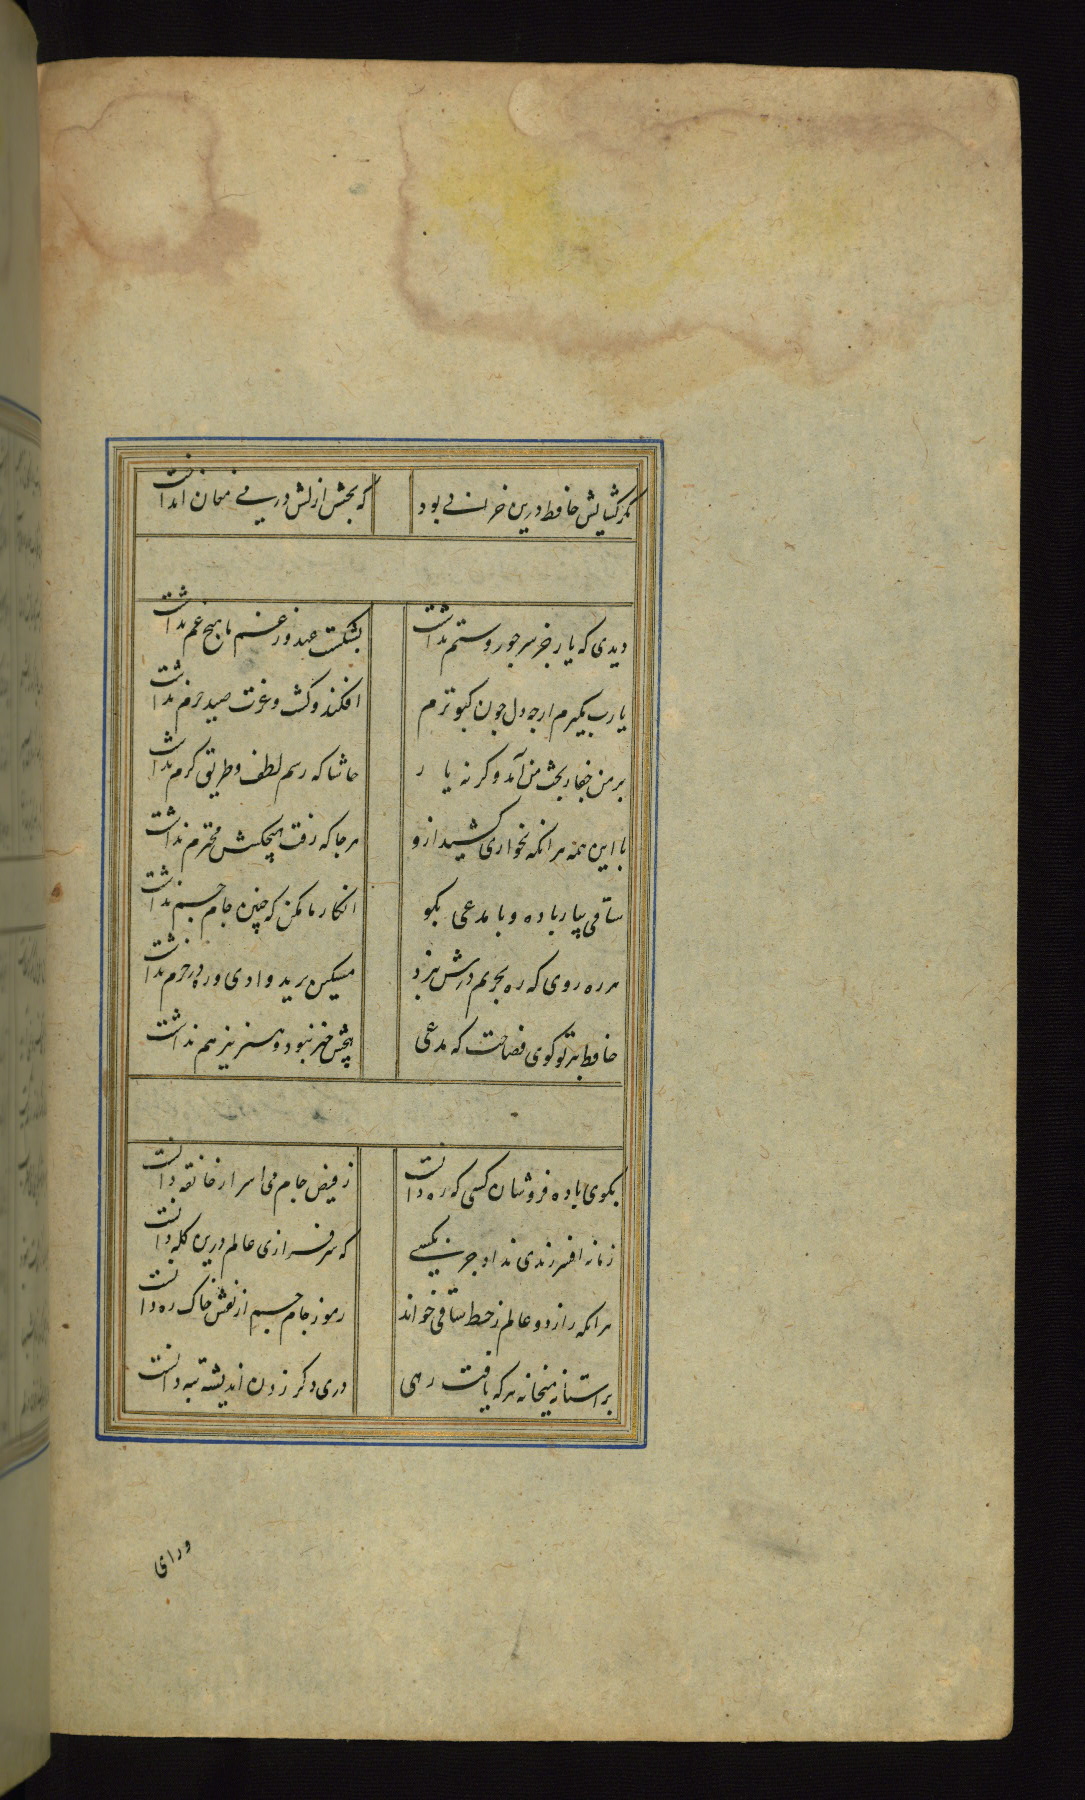 مگر گشایش حافظ درین خرابی بود که بخشش ازلش در می مغان انداخت
دیدی که یار جز سر جور و ستم نداشت بشکست عهد وز غم ما هیچ غم نداشت
یا رب مگیرم ارچه دل چون کبوترم افکند و کشت و عزت صید حرم نداشت
بر من جفا ز بخت من آمد وگرنه یار حاشا که رسم لطف و طریق کرم نداشت
با این همه هرانکه نخواری کشید ازو هرجا که رفت هیچکسش محترم نداشت
ساقی بیار باده و با مدعی بگو انکار ما مکن که چنین جام جم نداشت
هر ره روی که ره بحریم درش نبرد مسکین برید وادی و ره در حرم نداشت
حافظ ببر تو گوی فصاحت که مدعی هیچش هنر نبود و هنر نیز هم نداشت
بکوی باده فروشان کسی که ره دانست ز فیض جام می اسرار خانقه دانست
زمانه افسر رندی نداد جز بکسی که سرفرازی عالم درین کله دانست
هرانکه راز دو عالم ز خط ساقی خواند رموز جام جم از نقش خاک ره دانست
بر آستانه میخانه هر که یافت رهی دری دگر زدن اندیشه تبه دانست
ورای